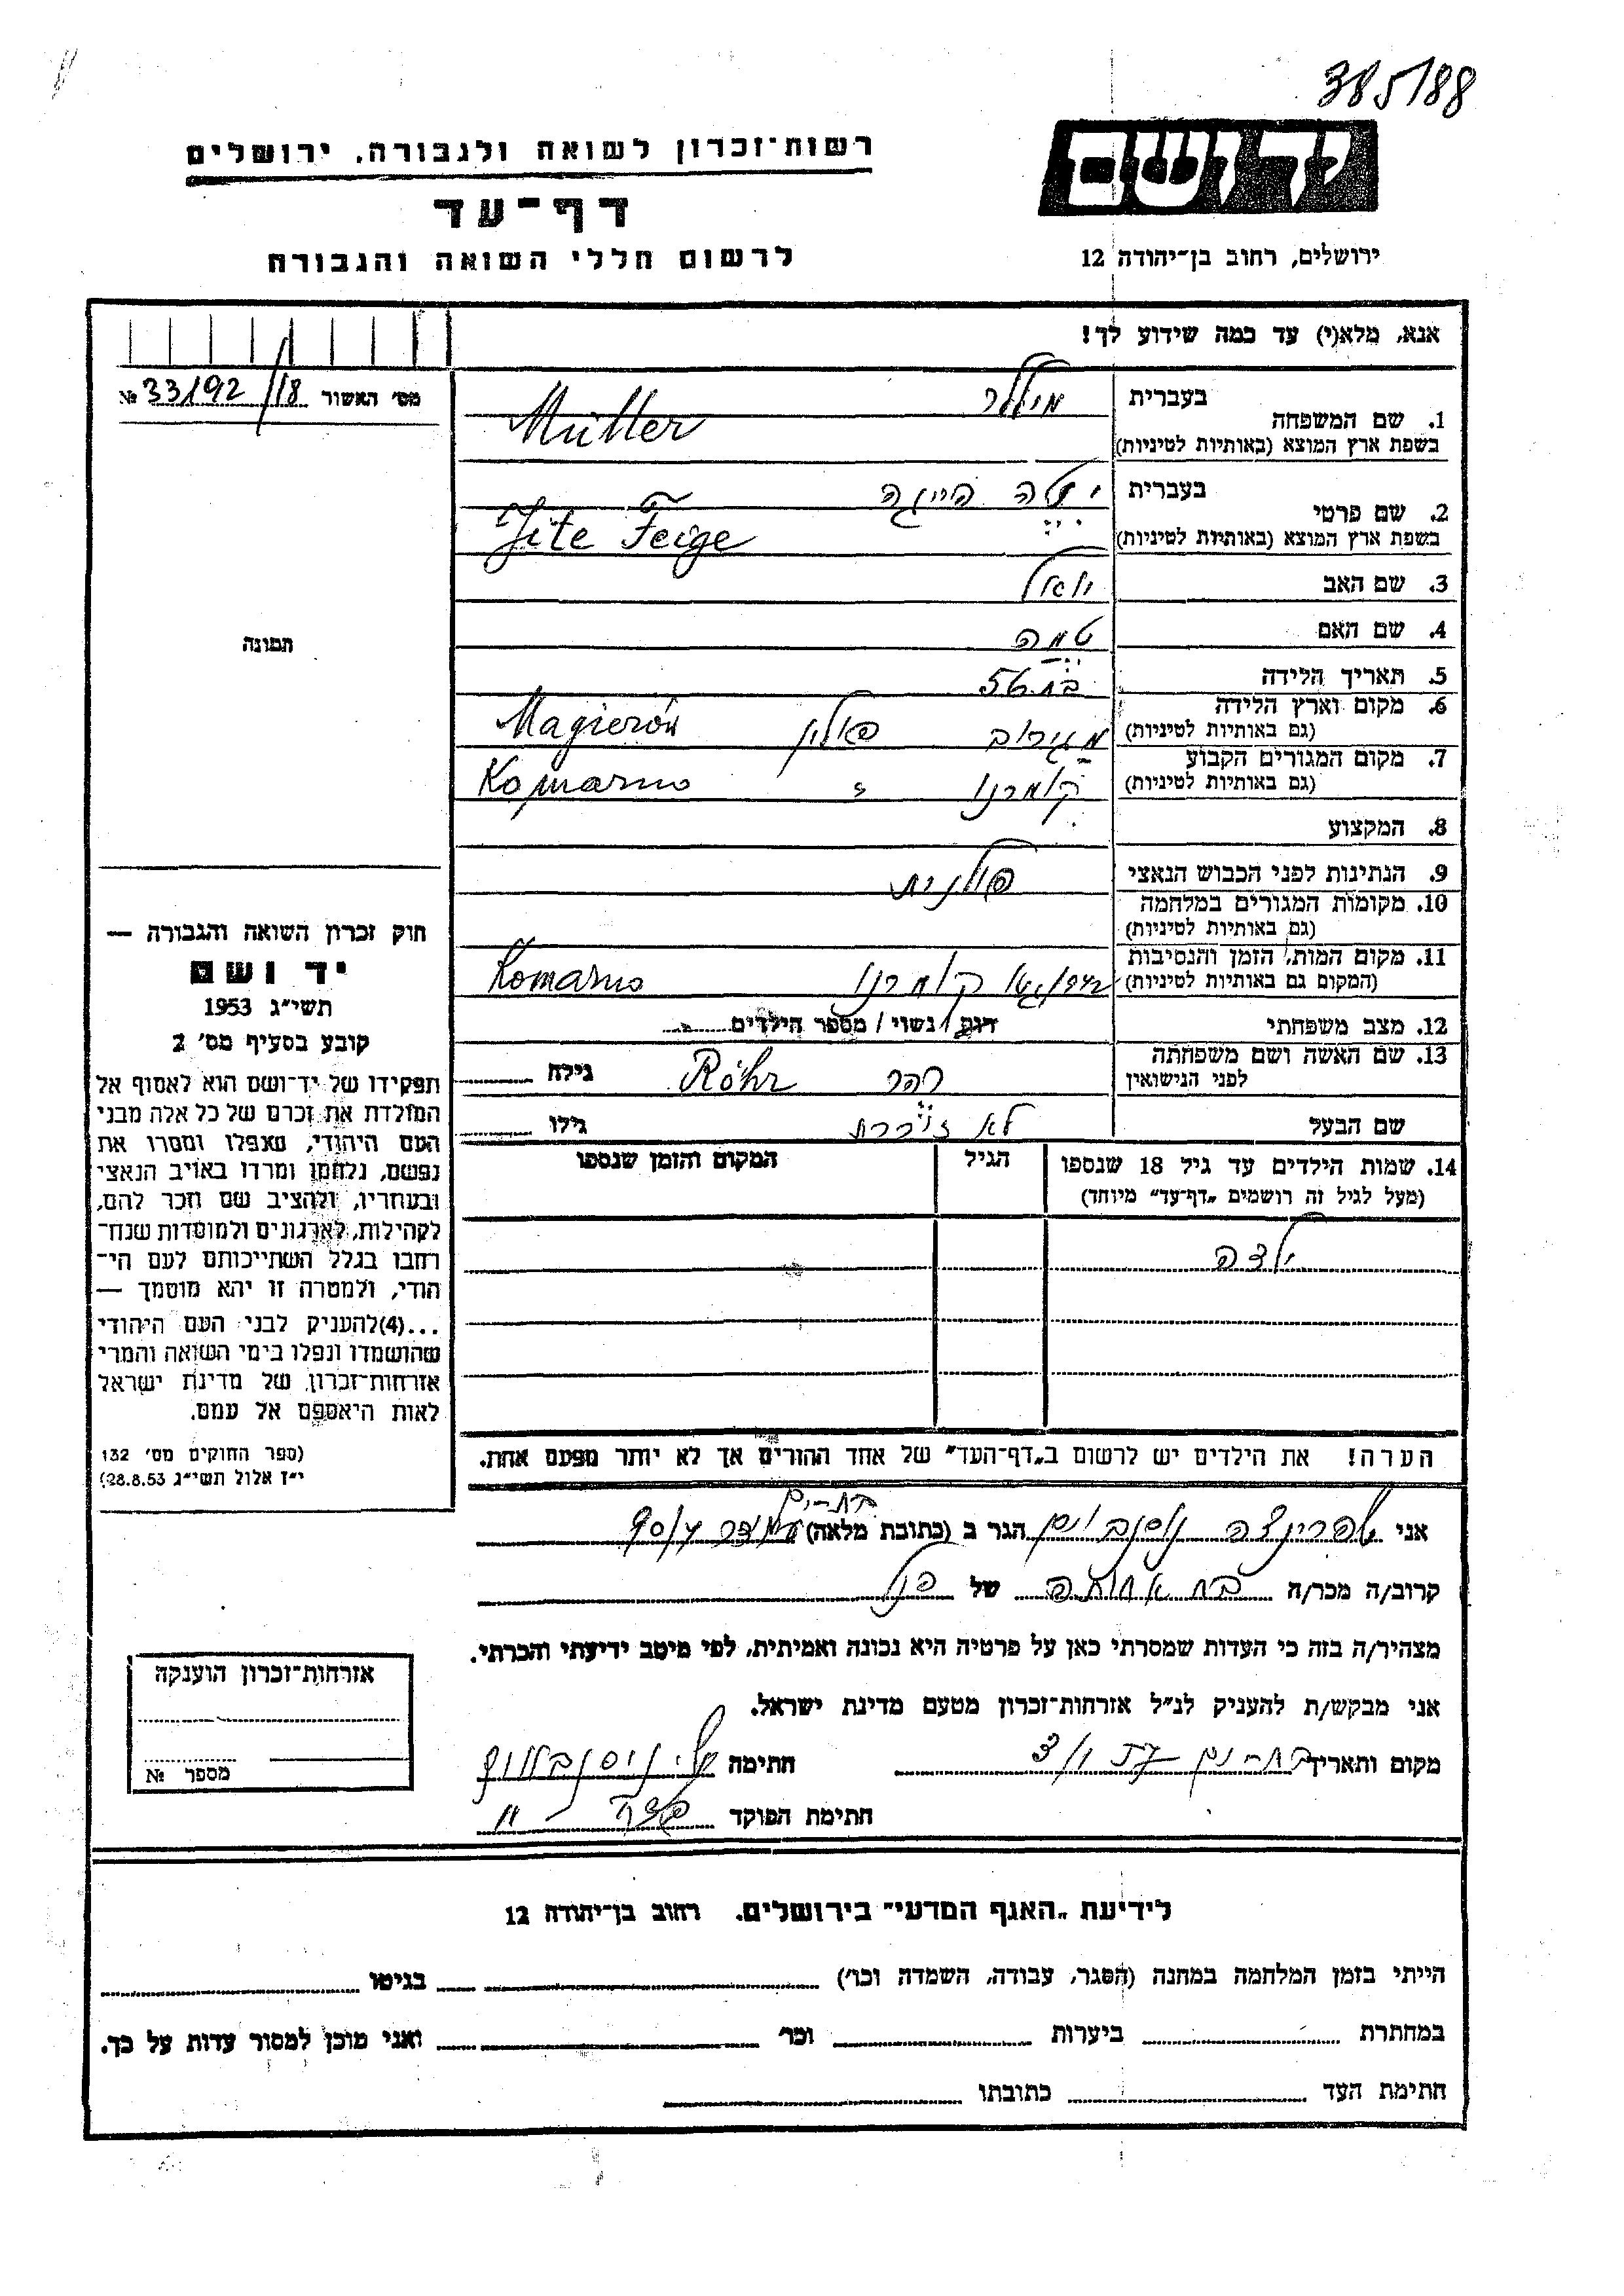 385188
יד ושם
ירושלים, רחוב בן־יהודה 12
רשות־זכרון לשואה ולגבורה, ירושלים
דף־עד
לרשום חללי השואה והגבורה
אנא, מלא(י) עד כמה שידוע לך!
מס׳ האשור 33192/18 №
1. שם המשפחה בעברית מיללר
בשפת ארץ המוצא (באותיות לטיניות) Müller
2. שם פרטי בעברית יטה פייגה
בשפת ארץ המוצא (באותיות לטיניות) Jite Feige
3. שם האב יואל
4. שם האם
5. תאריך הלידה
6. מקום וארץ הלידה
(גם באותיות לטיניות) מגירוב פולין Magierów
7. מקום המגורים הקבוע
(גם באותיות לטיניות) קומרנו Komarno
8. המקצוע
9. הנתינות לפני הכבוש הנאצי פולנית
10. מקומות המגורים במלחמה
(גם באותיות לטיניות)
11. מקום המות, הזמן והנסיבות
(המקום גם באותיות לטיניות) קומרנו Komarno
12. מצב משפחתי רווק / נשוי / מספר הילדים
13. שם האשה ושם משפחתה
לפני הנישואין רהר Röhr גילה
שם הבעל לא זוכרת גילו
14. שמות הילדים עד גיל 18 שנספו
(מעל לגיל זה רושמים „דף־עד״ מיוחד)
הגיל
המקום והזמן שנספו
ילדה
הערה! את הילדים יש לרשום ב„דף־העד״ של אחד ההורים אך לא יותר מפעם אחת.
תמונה
חוק זכרון השואה והגבורה —
יד ושם
תשי״ג 1953
קובע בסעיף מס׳ 2
תפקידו של יד־ושם הוא לאסוף אל
המולדת את זכרם של כל אלה מבני
העם היהודי, שנפלו ומסרו את
נפשם, נלחמו ומרדו באויב הנאצי
ובעוזריו, ולהציב שם וזכר להם,
לקהילות, לארגונים ולמוסדות שנח־
רבו בגלל השתייכותם לעם הי־
הודי, ולמטרה זו יהא מוסמך —
...(4)להעניק לבני העם היהודי
שהושמדו ונפלו בימי השואה והמרי
אזרחות־זכרון של מדינת ישראל
לאות היאספם אל עמם.
(ספר החוקים מס׳ 132
י״ז אלול תשי״ג 28.8.53)
אני שפרינצה נוסנבוים הגר ב (כתובת מלאה) 90/4
קרוב/ה מכר/ה בת אחותה של הנ״ל
מצהיר/ה בזה כי העדות שמסרתי כאן על פרטיה היא נכונה ואמיתית, לפי מיטב ידיעתי והכרתי.
אני מבקש/ת להעניק לנ״ל אזרחות־זכרון מטעם מדינת ישראל.
מקום ותאריך חתימה
חתימת הפוקד
אזרחות־זכרון הוענקה
מספר №
לידיעת „האגף המדעי״ בירושלים. רחוב בן־יהודה 12
הייתי בזמן המלחמה במחנה (הסגר, עבודה, השמדה וכו׳) בגיטו
במחתרת ביערות וכו׳ ואני מוכן למסור עדות על כך.
חתימת העד כתובתו